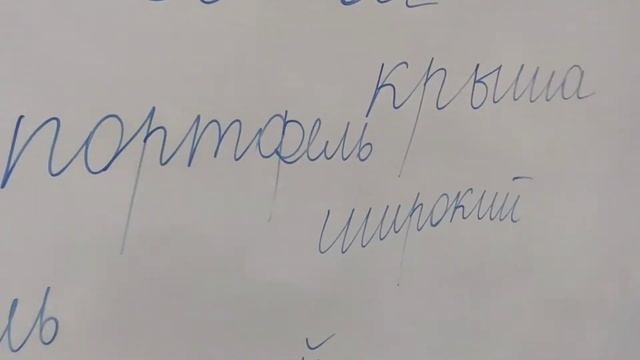 крыша
портфель
широкий
ль